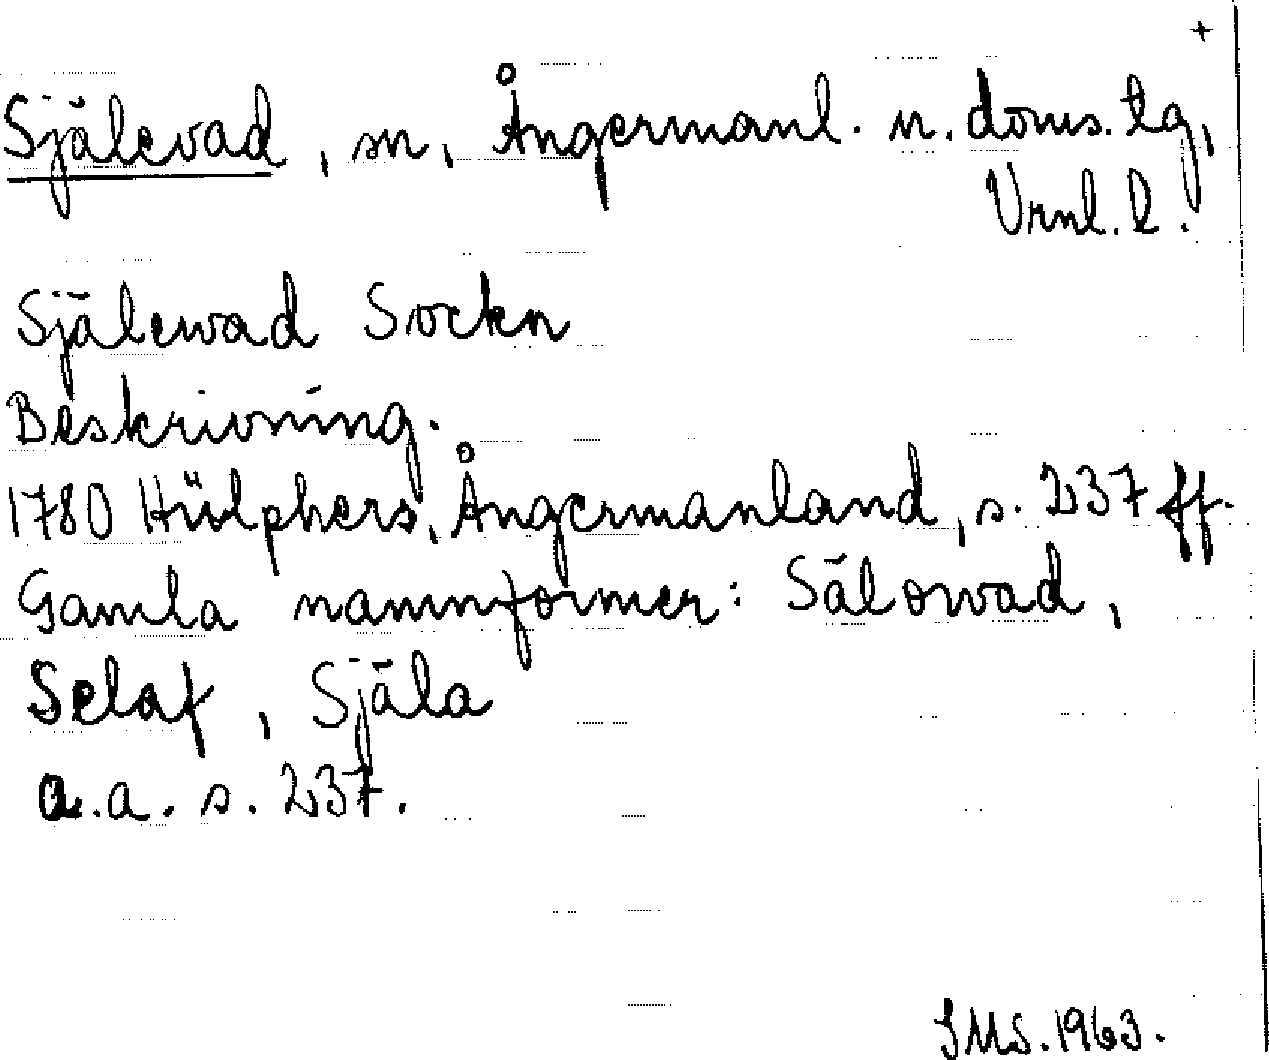 +
Själevad, sn, Ångermanl. n. doms. tg,
Vrnl. l.
Själewad Sockn
Beskrivning.
1780 Hülphers, Ångermanland, s. 237 ff.
Gamla namnformer: Sälowad,
Selaf, Själa
a.a. s. 237.
SMS. 1963.